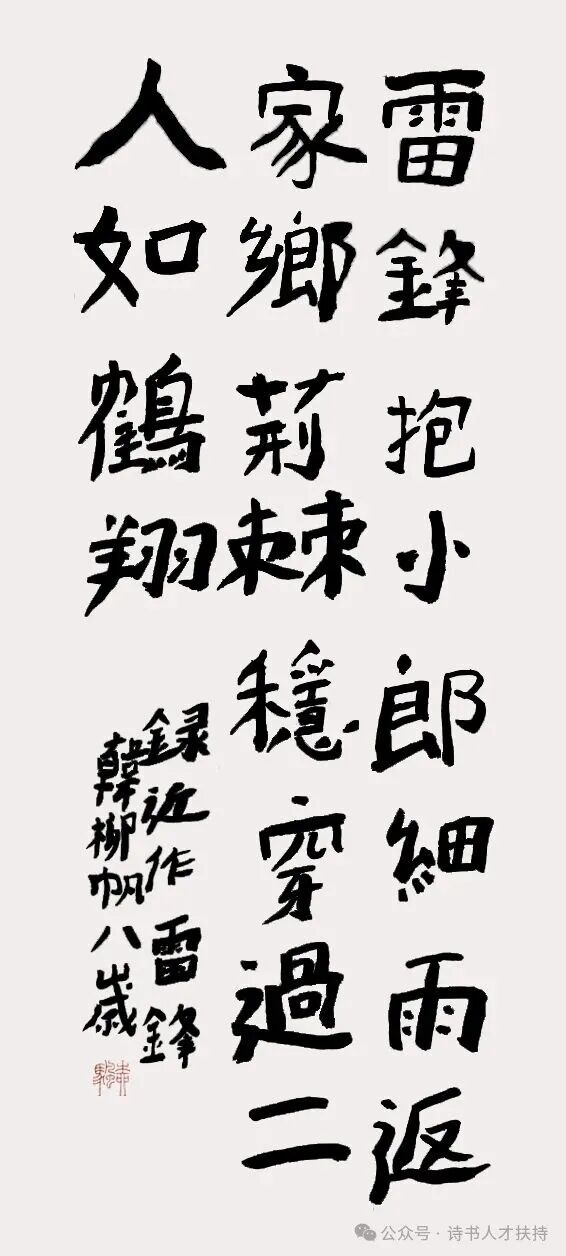 雷鋒抱小郎細雨返
家鄉荊棘穩穿過二
人如鶴翔
録近作雷鋒
韓柳帆八歲
公众号·诗书人才扶持